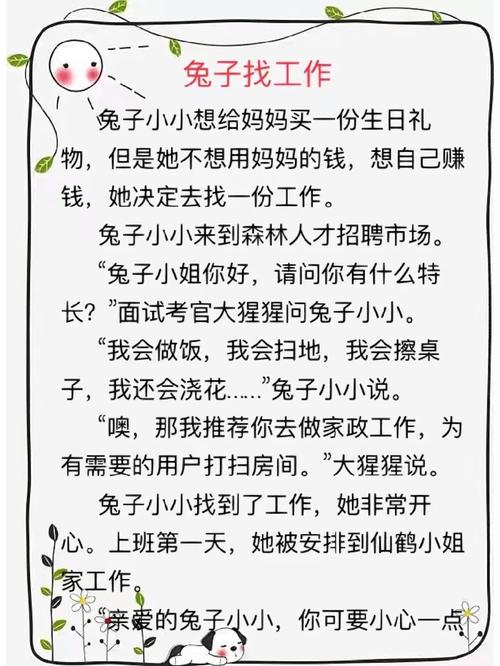 兔子找工作
兔子小小想给妈妈买一份生日礼
物，但是她不想用妈妈的钱，想自己赚
钱，她决定去找一份工作。
兔子小小来到森林人才招聘市场。
“兔子小姐你好，请问你有什么特
长？”面试考官大猩猩问兔子小小。
“我会做饭，我会扫地，我会擦桌
子，我还会浇花……”兔子小小说。
“噢，那我推荐你去做家政工作，为
有需要的用户打扫房间。”大猩猩说。
兔子小小找到了工作，她非常开
心。上班第一天，她被安排到仙鹤小姐
家工作。
“亲爱的兔子小小，你可要小心一点